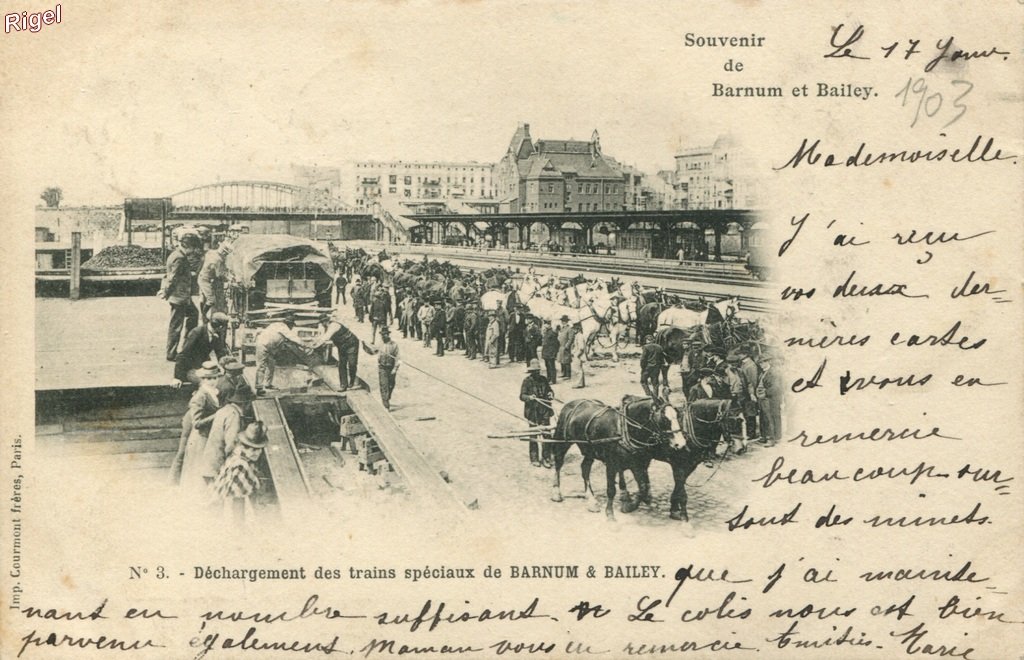 Rigel
Souvenir
de
Barnum et Bailey.
Le 17 Janv.
1903
Mademoiselle.
J'ai reçu
vos deux der=
nières cartes
et vous en
remercie
beaucoup sur=
tout des minets.
que j'ai mainte=
nant en nombre suffisant. Le colis nous est bien
parvenu également. Maman vous en remercie. Amitiés. Marie
N° 3. - Déchargement des trains spéciaux de BARNUM & BAILEY.
Imp. Courmont frères, Paris.